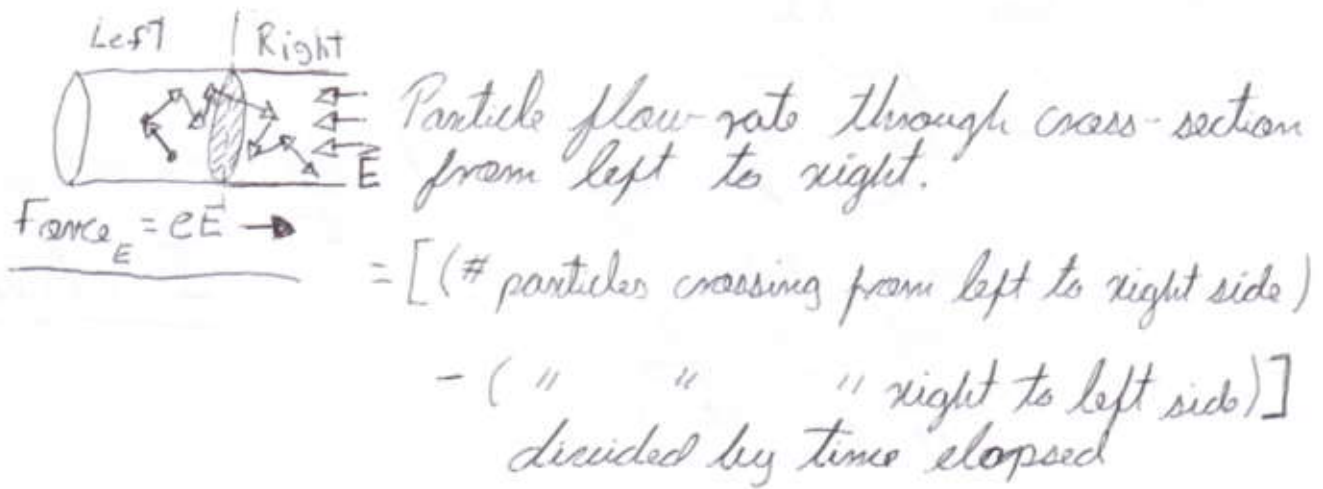 Left | Right
E
Force_E = eE →
Particle flow-rate through cross-section
from left to right.
= [(# particles crossing from left to right side)
- ( " " " right to left side)]
divided by time elapsed